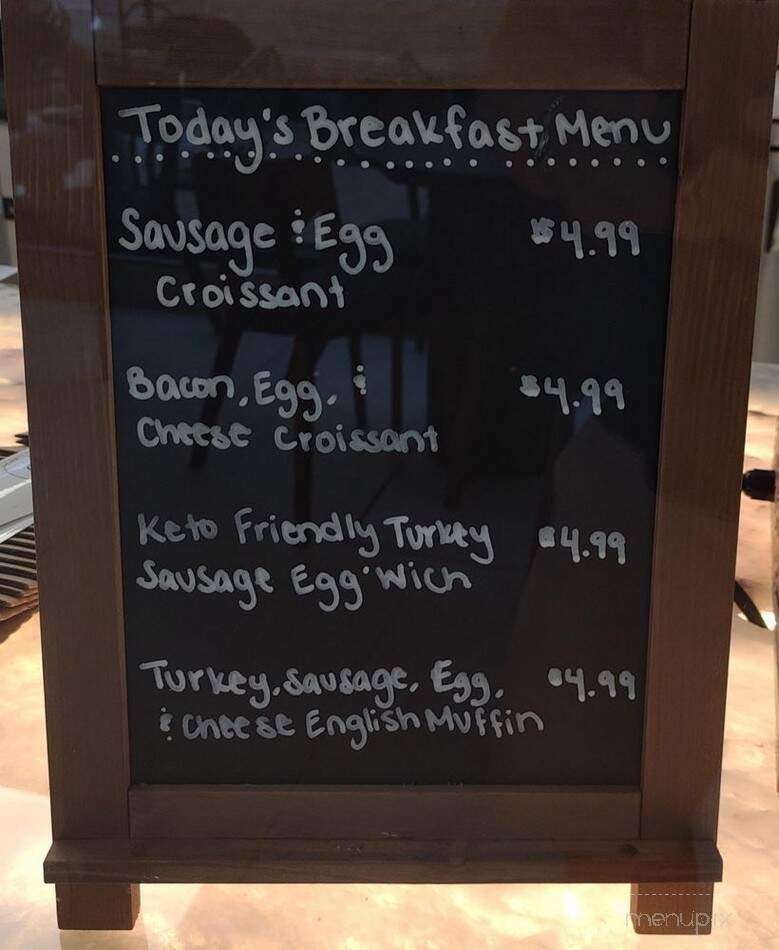 Today's Breakfast Menu
Sausage & Egg $4.99
Croissant
Bacon, Egg, & $4.99
Cheese Croissant
Keto Friendly Turkey $4.99
Sausage Egg'Wich
Turkey, Sausage, Egg, $4.99
& Cheese English Muffin
menupix